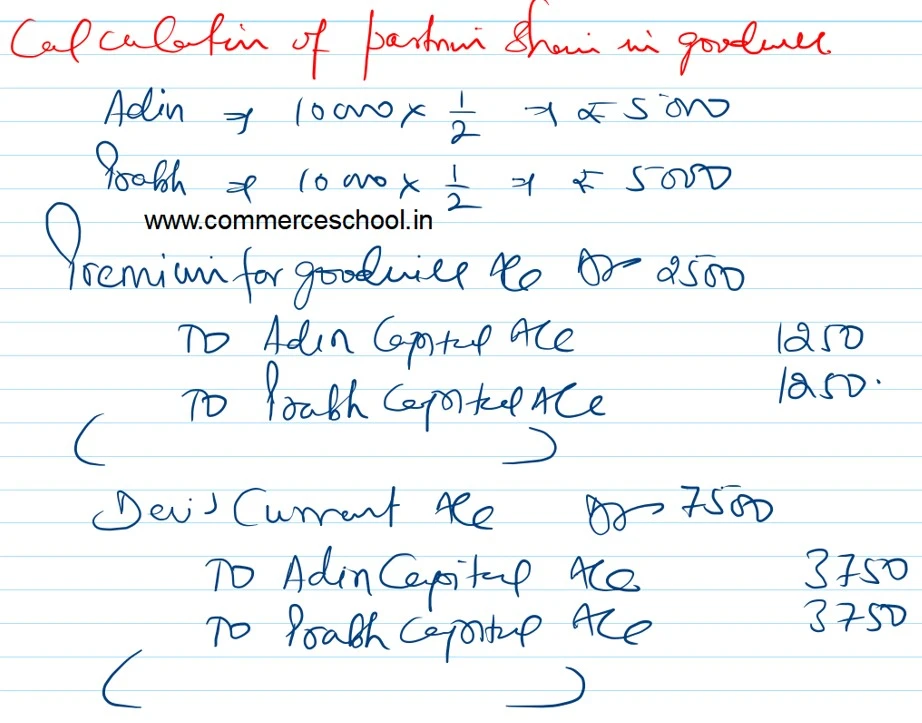 Calculation of partners share in goodwill
Adin ⇒ 10000 × 1/2 ⇒ ₹ 5000
Prabh ⇒ 10000 × 1/2 ⇒ ₹ 5000
www.commerceschool.in
Premium for goodwill A/c Dr 2500
TO Adin Capital A/c 1250
TO Prabh Capital A/c 1250.
( )
Devi's Current A/c Dr 7500
TO Adin Capital A/c 3750
TO Prabh Capital A/c 3750
( )